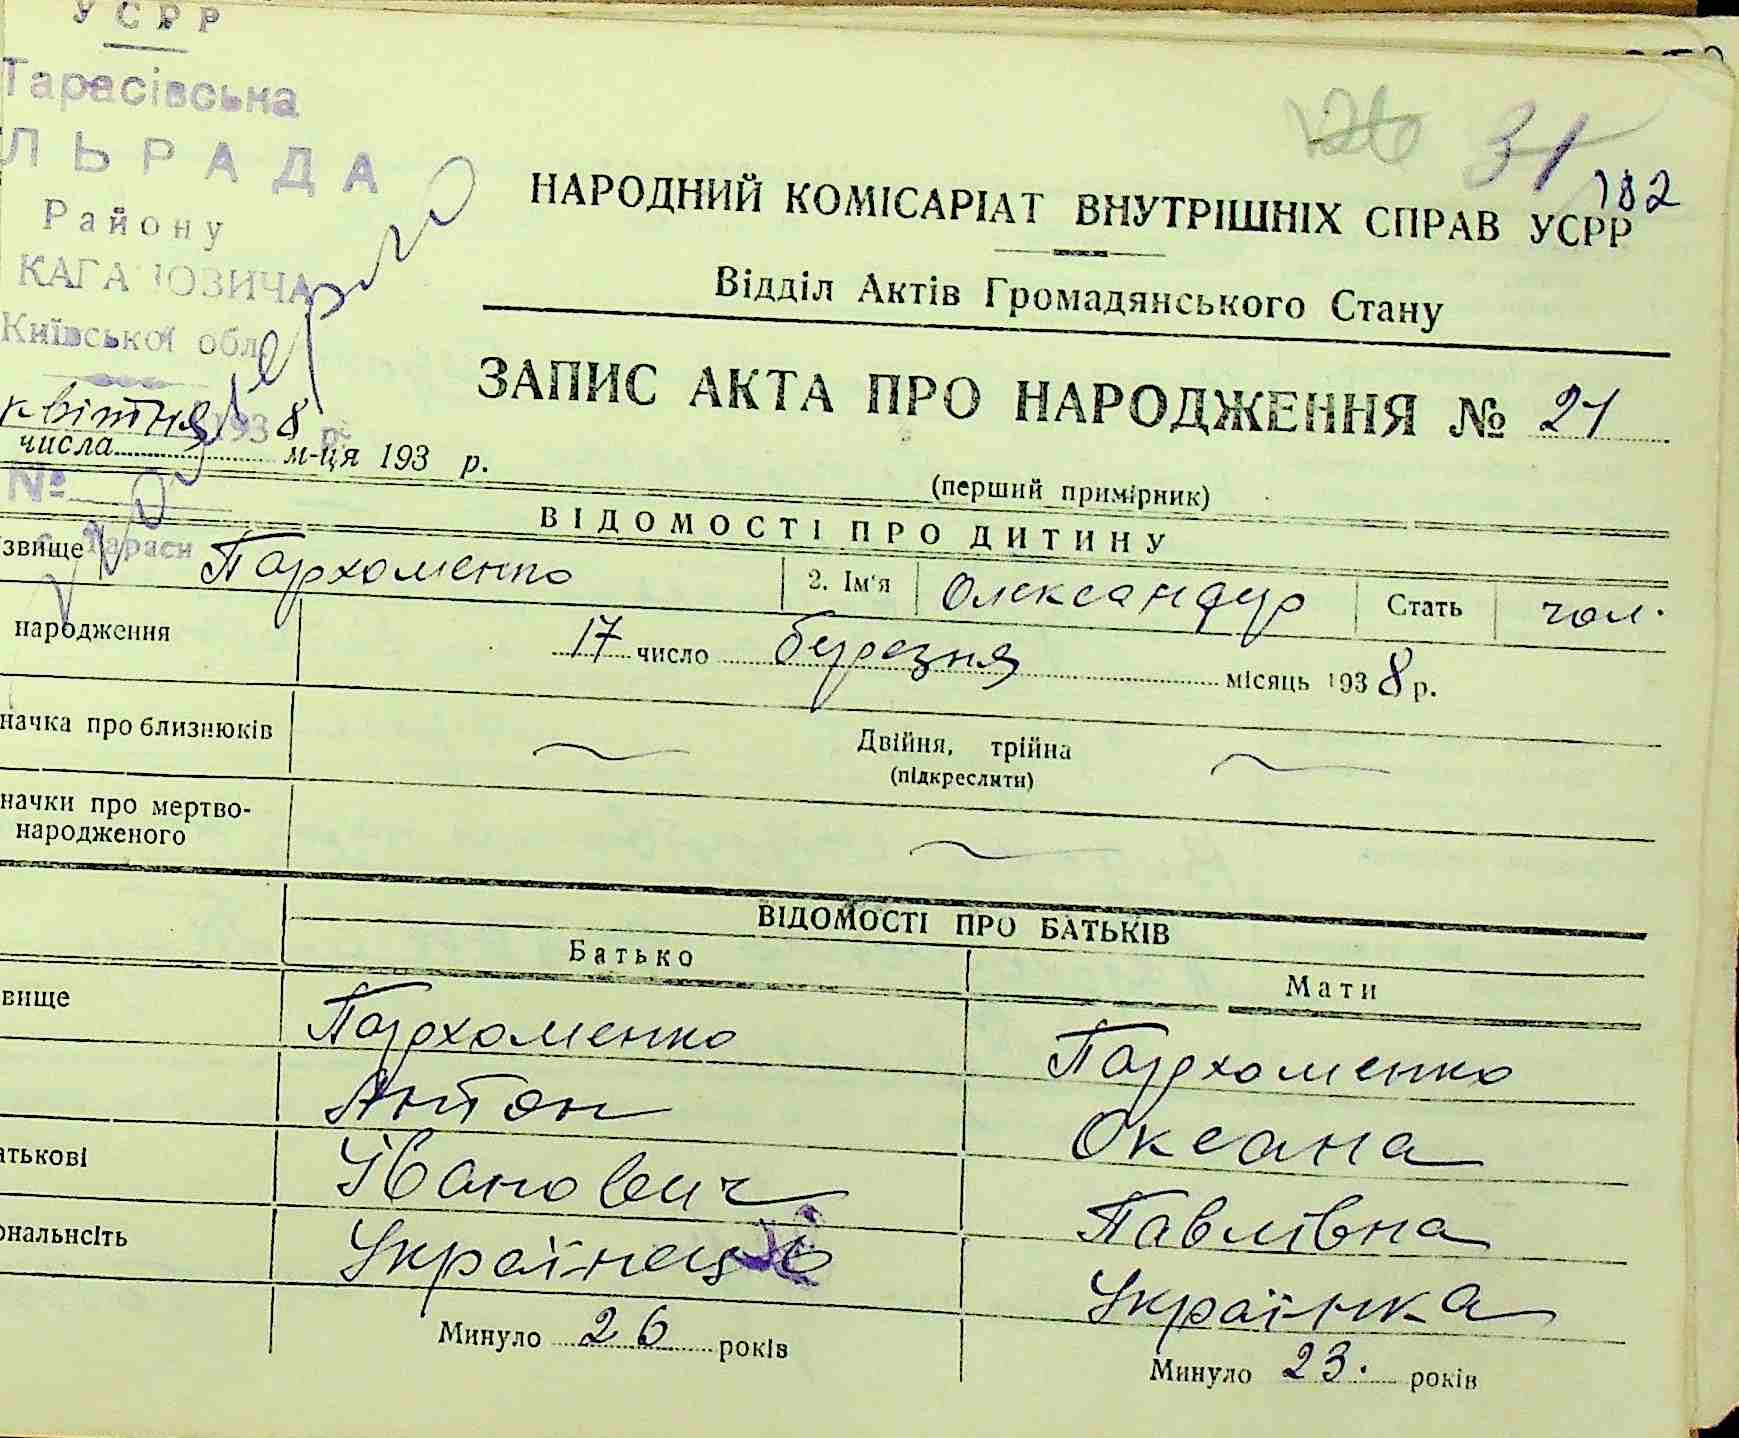 УСРР
Тарасівська
ЛЬРАДА
Району
КАГА ОВИЧА
Київської обл
31
182
НАРОДНИЙ КОМІСАРІАТ ВНУТРІШНІХ СПРАВ УСРР
Відділ Актів Громадянського Стану
ЗАПИС АКТА ПРО НАРОДЖЕННЯ № 21
квітня 1938 р.
числа м-ця 193 р.
№
(перший примірник)
ВІДОМОСТІ ПРО ДИТИНУ
звище Пархоменко 2. Ім'я Олександр Стать чол.
народження 17 число березня місяць 1938 р.
начка про близнюків Двійня, трійня
(підкреслити)
начки про мертво-
народженого
ВІДОМОСТІ ПРО БАТЬКІВ
Батько Мати
звище Пархоменко Пархоменко
Антон Оксана
атькові Іванович Павлівна
ональнсіть Українець Українка
Минуло 26 років Минуло 23. років